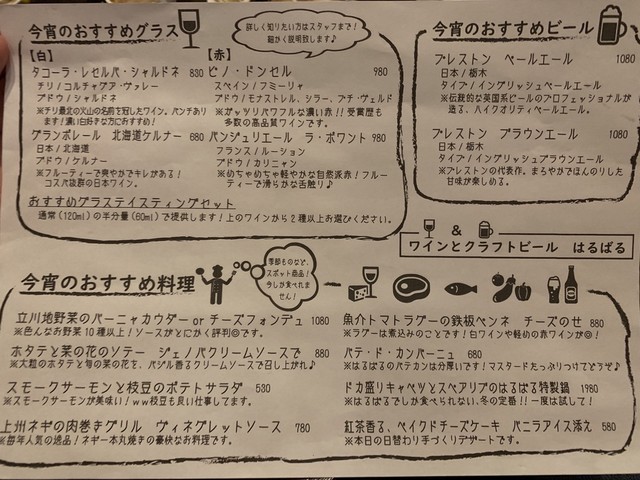 今宵のおすすめグラス
詳しく知りたい方はスタッフまで!
細かく説明致します♪
【白】
タコーラ・レセルバ・シャルドネ 830
チリ/コルチャグア・ヴァレー
ブドウ/シャルドネ
※チリ最北の火山の名前を冠したワイン。パンチあり
ます!濃い白好きな方におすすめ!
グランポレール 北海道ケルナー 680
日本/北海道
ブドウ/ケルナー
※フルーティーで爽やかでキレがある!
コスパ抜群の日本ワイン。
【赤】
ピノ・ドンセル 980
スペイン/フミーリャ
ブドウ/モナストレル、シラー、プチ・ヴェルド
※ガッツリパワフルな濃い赤!!受賞歴も
多数の高品質ワイン。
パンジュリエール ラ・ポワント 980
フランス/ルーション
ブドウ/カリニャン
※めちゃめちゃ軽やかな自然派赤!フルー
ティーで滑らかな舌触り♪
おすすめグラステイスティングセット
通常(120ml)の半分量(60ml)で提供します!上のワインから2種以上お選びください。
今宵のおすすめビール
プレストン ペールエール 1080
日本/栃木
タイプ/イングリッシュペールエール
※伝統的な英国系ビールのプロフェッショナルが
造る、ハイクオリティペールエール。
プレストン ブラウンエール 1080
日本/栃木
タイプ/イングリッシュブラウンエール
※プレストンの代表作。まろやかでほんのりした
甘味が楽しめる。
&
ワインとクラフトビール はるばる
今宵のおすすめ料理
季節ものなど、
スポット商品!
今しか食べれま
せん!
立川地野菜のバーニャカウダー or チーズフォンデュ 1080
※色んなお野菜10種以上!ソースがとにかく評判◎です。
ホタテと菜の花のソテー ジェノバクリームソースで 880
※大粒のホタテと旬の菜の花を、バジル香るクリームソースで召し上がれ♪
スモークサーモンと枝豆のポテトサラダ 530
※スモークサーモンが美味い!ww枝豆も良い仕事してます。
上州ネギの肉巻きグリル ヴィネグレットソース 780
※毎年人気の逸品!ネギ一本丸焼きの豪快なお料理です。
魚介トマトラグーの鉄板ペンネ チーズのせ 880
※ラグーは煮込みのことです!白ワインや軽めの赤ワインが◎!
パテ・ド・カンパーニュ 680
※はるばるのパテカンは分厚いです!マスタードたっぷりつけてどうぞ♪
ドカ盛りキャベツとスペアリブのはるばる特製鍋 1980
※はるばるでしか食べられない、冬の定番!!一度は試して!
紅茶香る、ベイクドチーズケーキ バニラアイス添え 580
※本日の日替わり手づくりデザートです。